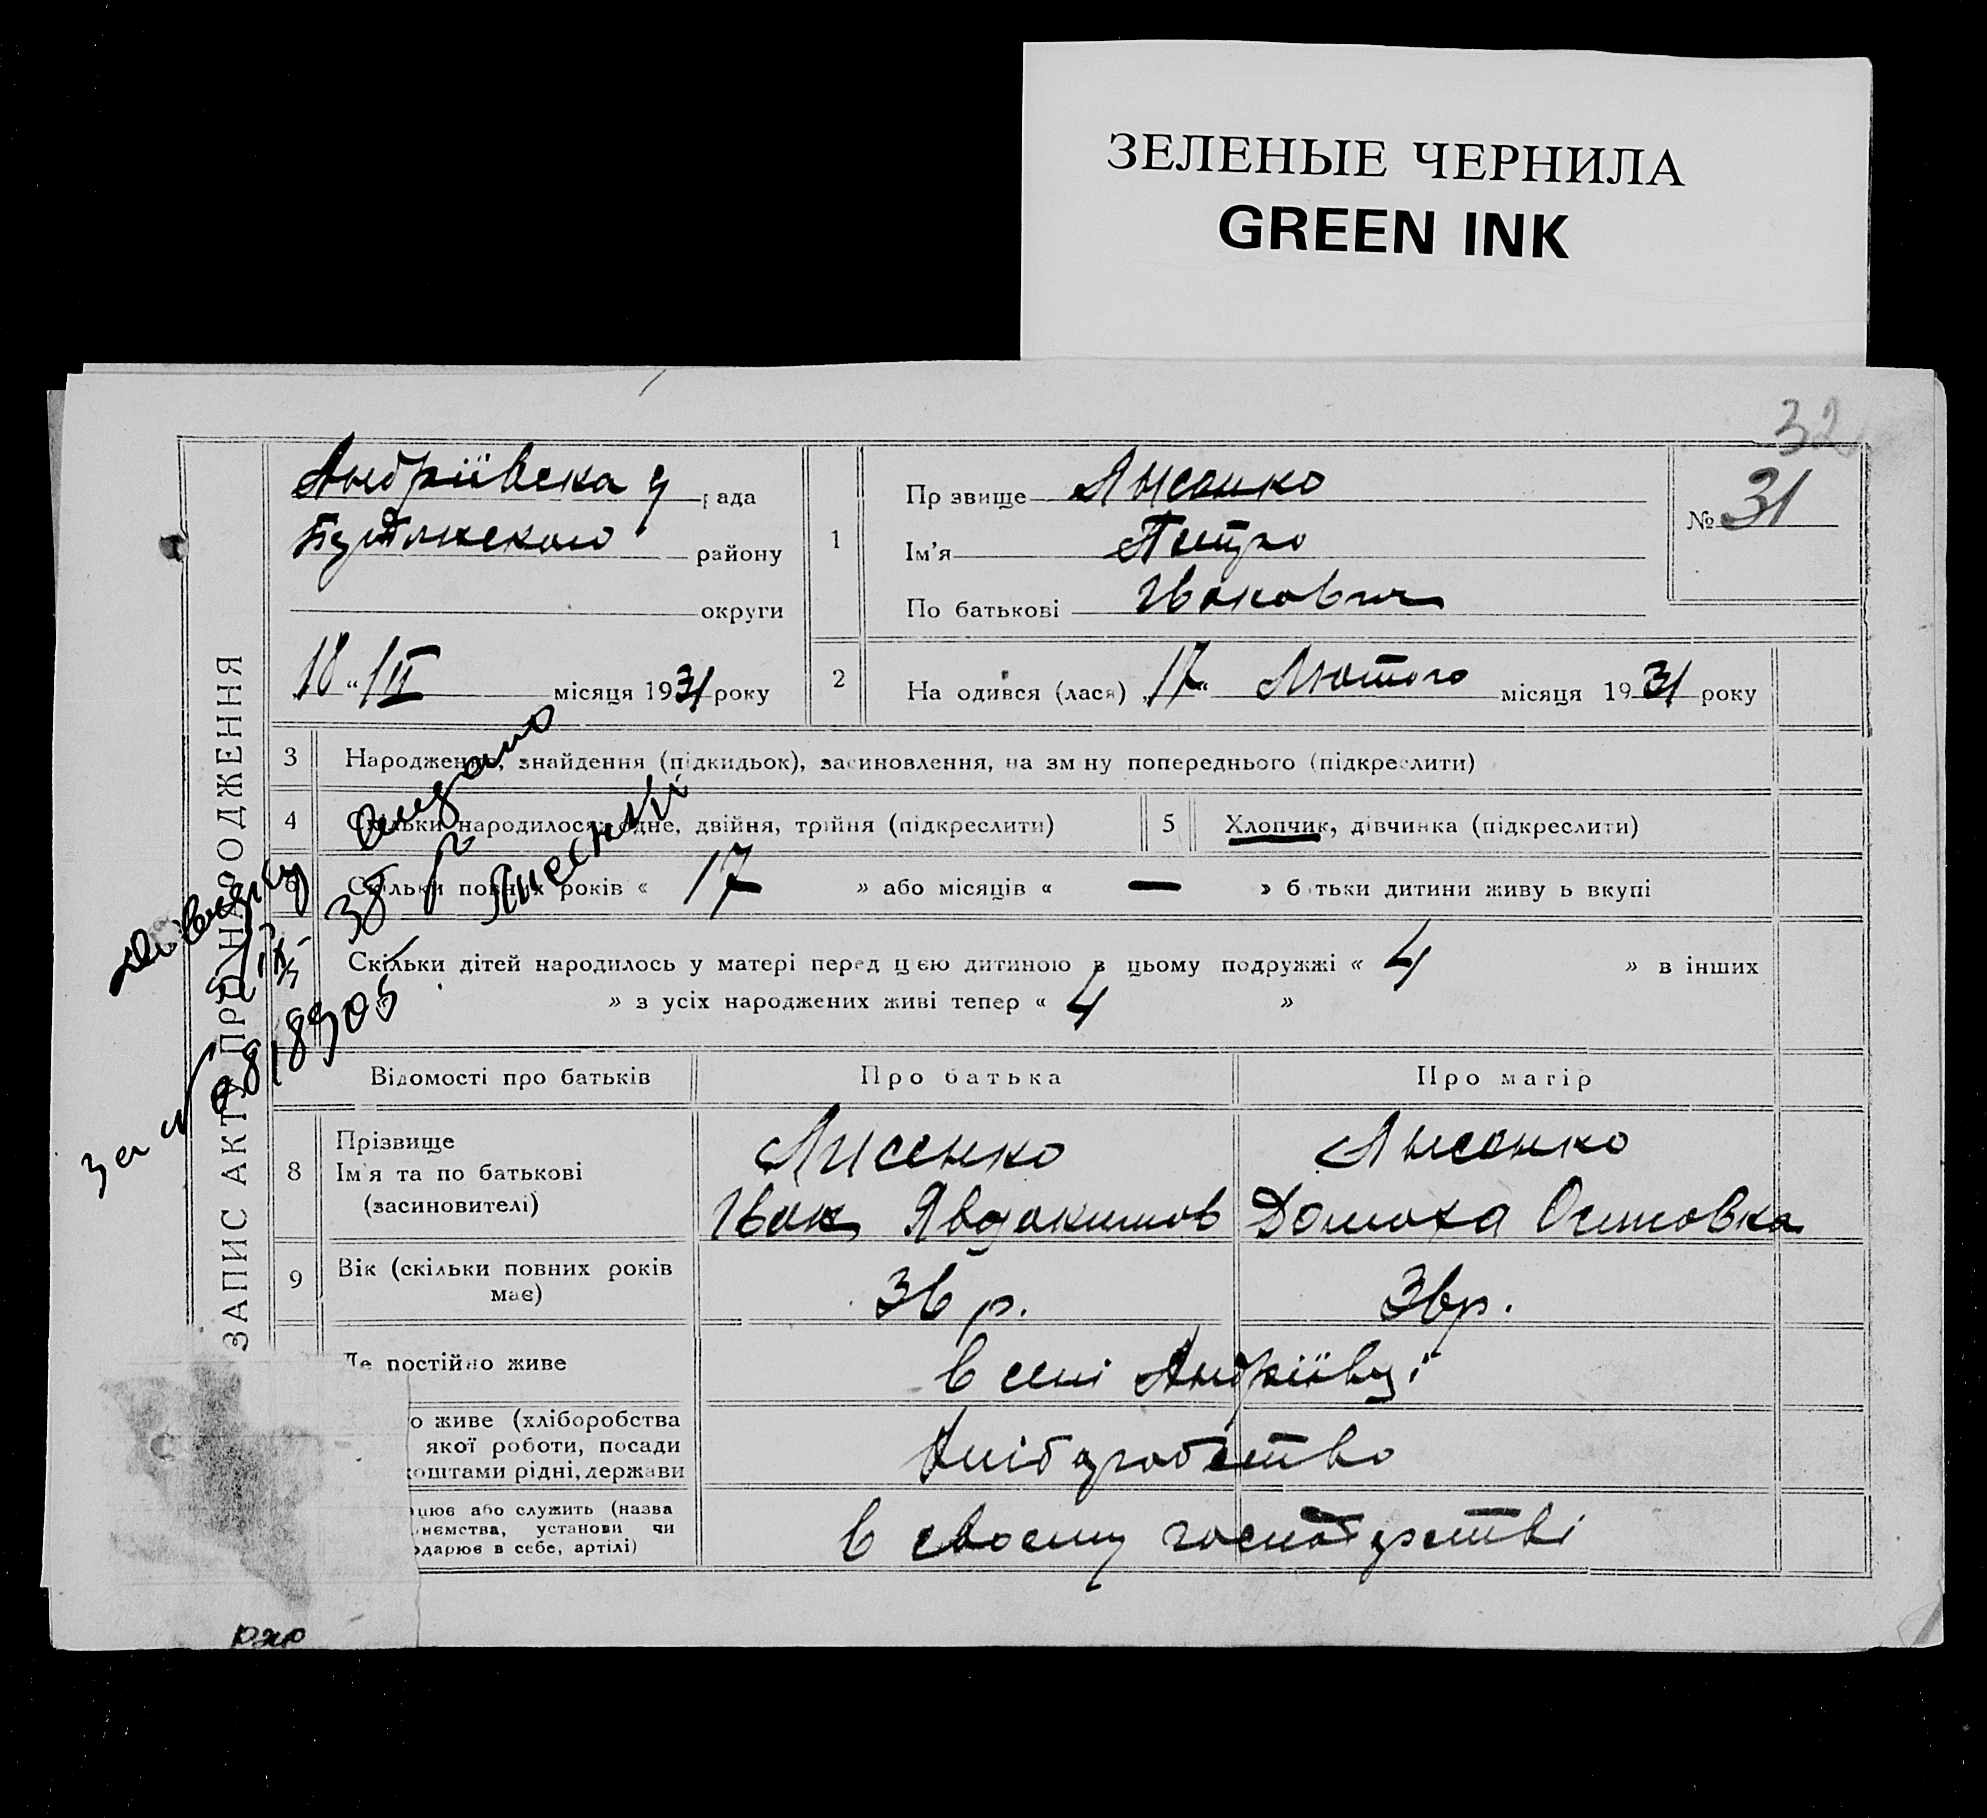 ЗЕЛЕНЫЕ ЧЕРНИЛА
GREEN INK
32
Андріївська рада
району
округи
18 "/II місяця 1931 року
1
Прізвище Лысенко
Ім'я Петро
По батькові Іванович
№ 31
2
Народився (лася) "17" Лютого місяця 1931 року
ЗАПИС АКТУ ПРО НАРОДЖЕННЯ
3 Народження, знайдення (підкидьок), засиновлення, на зміну попереднього (підкреслити)
4 Скільки народилося: одне, двійня, трійня (підкреслити)
5 Хлопчик, дівчинка (підкреслити)
6 Скільки повних років « 17 » або місяців « — » батьки дитини живуть вкупі
Скільки дітей народилось у матері перед цією дитиною в цьому подружжі « 4 » в інших
» з усіх народжених живі тепер « 4 »
видано
38 р
за № 818905
Відомості про батьків
Про батька
Про матір
8 Прізвище
Ім'я та по батькові
(засиновителі)
Лисенко
Іван Явдакимов
Лысенко
Домаха Оситовка
9 Вік (скільки повних років
має)
36 р.
36 р.
Де постійно живе
в селі Андріївці
о живе (хліборобства
якої роботи, посади
коштами рідні, держави
Хліборобство
цює або служить (назва
нємства, установи чи
одарює в себе, артілі)
в своєму господарстві